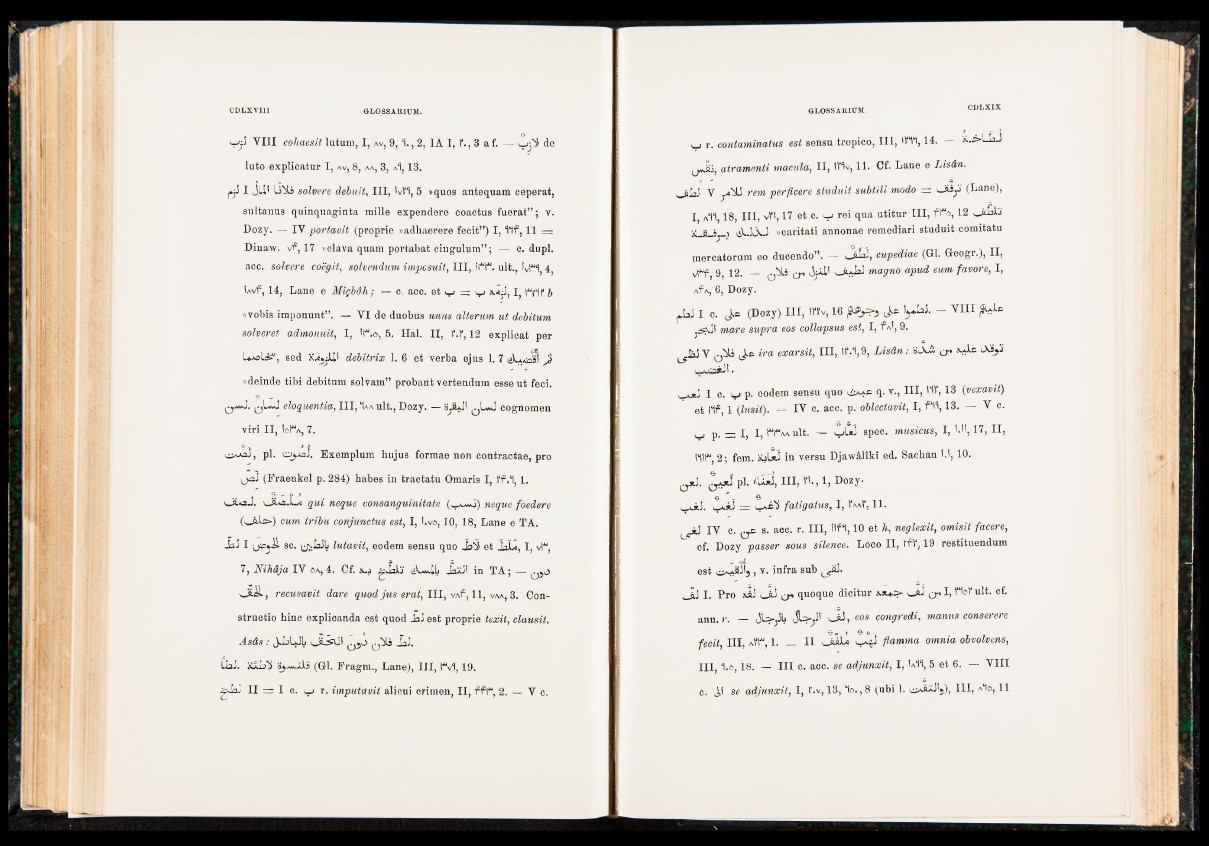 CDLXVIII GLOSSARIUM.
لزب VIII cohaesit lutum, I, ٨٧, 9, ٩٠, 2, IA I, ٢٠, 3 a f. — لازب de
luto explicatur I, ٨٧, 8, ٨٨, 3, ٨٩, 13.
لزم I فلانا المال solvere debuit, III, 5 »quos antequam ceperat,
sultanus quinquaginta mille expendere coactus fuerat”; v.
Dozy. — IV portavit (proprie »adhaerere fecit”) I, ٩٢٤, 11 =
Dinaw. ٧٤, 17 »clava quam portabat cingulum”; — c. dupl.
acc. solvere coëgit, solvendum imposuit, III, ult., 4,
14, Lane e Miçbâh; — c. acc. et ب = لزمه ب, I, b
»vobis imponunt”. — VI de duobus unus alterum ut debitum
solveret admonuit, I, 5. Hal. II, ٢٠٢, 12 explicat per
sed الملزومة debitrix l. 6 et verba ejus l. 7 ثم أقضيك
»deinde tibi debitum solvam” probant vertendum esse ut feci.
لسن. لسان eloquentia, III, ult., Dozy. — cognomen
viri II, 7.
لصت, pl. لصوت. Exemplum hujus formae non contractae, pro
لص (Fraenkel p. 284) habes in tractatu Omaris I, ٢٤٠٩, 1.
لصق. ملصق qui neque consanguinitate (نسب) neque foedere
(حلف) cum tribu conjunctus est, I, 10, 18, Lane e TA.
لط I الحوض sc. بالطين lutavit, eodem sensu quo لاط et ملط, I,
7, Nihâja IV ٥٨, 4. Cf. التط بالمسك تلطخ به in TA; — دون
الحق, recusavit dare quod jus erat, III, ٧٨٤, 11, ٧٨٨, 3. Con-
structio hinc explicanda est quod لط est proprie texit, clausit.
Asâs: لط فلان دون الحق بالباطل.
لطأ. لاطئة قلنسوة (Gl. Fragm., Lane), III, 19.
لطخ II = I c. ب r. imputavit alicui crimen, II, ٤٤٣, 2. — V c.
GLOSSARIUM. CDLXIX
ب r. contaminatus est sensu tropico, III, 14. — لطاخة
نقس, atramenti macula, II, 11. Cf. Lane e Lisân.
لطف V للامر rem perficere studuit subtili modo = ترفق (Lane),
I, ٨٩٩, 18, III, ٧٢١, 17 et c. ب rei qua utitur III, 12 تلطف
لذلك برفقة »caritati annonae remediari studuit comitatu
mercatorum eo ducendo”. — لطف, cupediae (Gl. Geogr.), II,
9, 12. — لطيف المنزل من فلان magno apud eum favore, I,
٨٤٨, 6, Dozy.
لطم I c. على (Dozy) III, 16 لطموا على وجوههم. — VIII عليكم
البحر mare supra eos collapsus est, I, ٤٨١, 9.
لظى V على فلان ira exarsit, III, 9, Lisân: توقد عليه من شدة
الغضب.
لعب I c. ب p. eodem sensu quo عبث q. v., III, 13 (vexavit)
et 1 (lusit). — IV c. acc. p. oblectavit, I, ٤٩٩, 13. — V c.
ب p. = I, I, ult. — لعاب spec. musicus, I, 17, II,
2; fem. لعابة in versu Djawâlîkî ed. Sachau 10.
لعن. لعين pl. لعناء, III, ٢٩٠, 1, Dozy.
لغب. لغب = لاغب fatigatus, I, 11.
لغى IV c. عن s. acc. r. III, 10 et h, neglexit, omisit facere,
cf. Dozy passer sous silence. Loco II, 19 restituendum
est والقيت, v. infra sub لقى.
لف I. Pro من لف لفه quoque dicitur من لف جمعه I, ult. cf.
ann. r. — لف الرجال بالرجال, eos congredi, manus conserere
fecit, III, 1. — II لهب ملفف flamma omnia obvolvens,
III, 18. — III c. acc. se adjunxit, I, 5 et 6. — VIII
c. الى se adjunxit, I, ٢٠٧, 13, ٩٥٠, 8 (ubi l. والتفت), III, ٨٩٥, 11